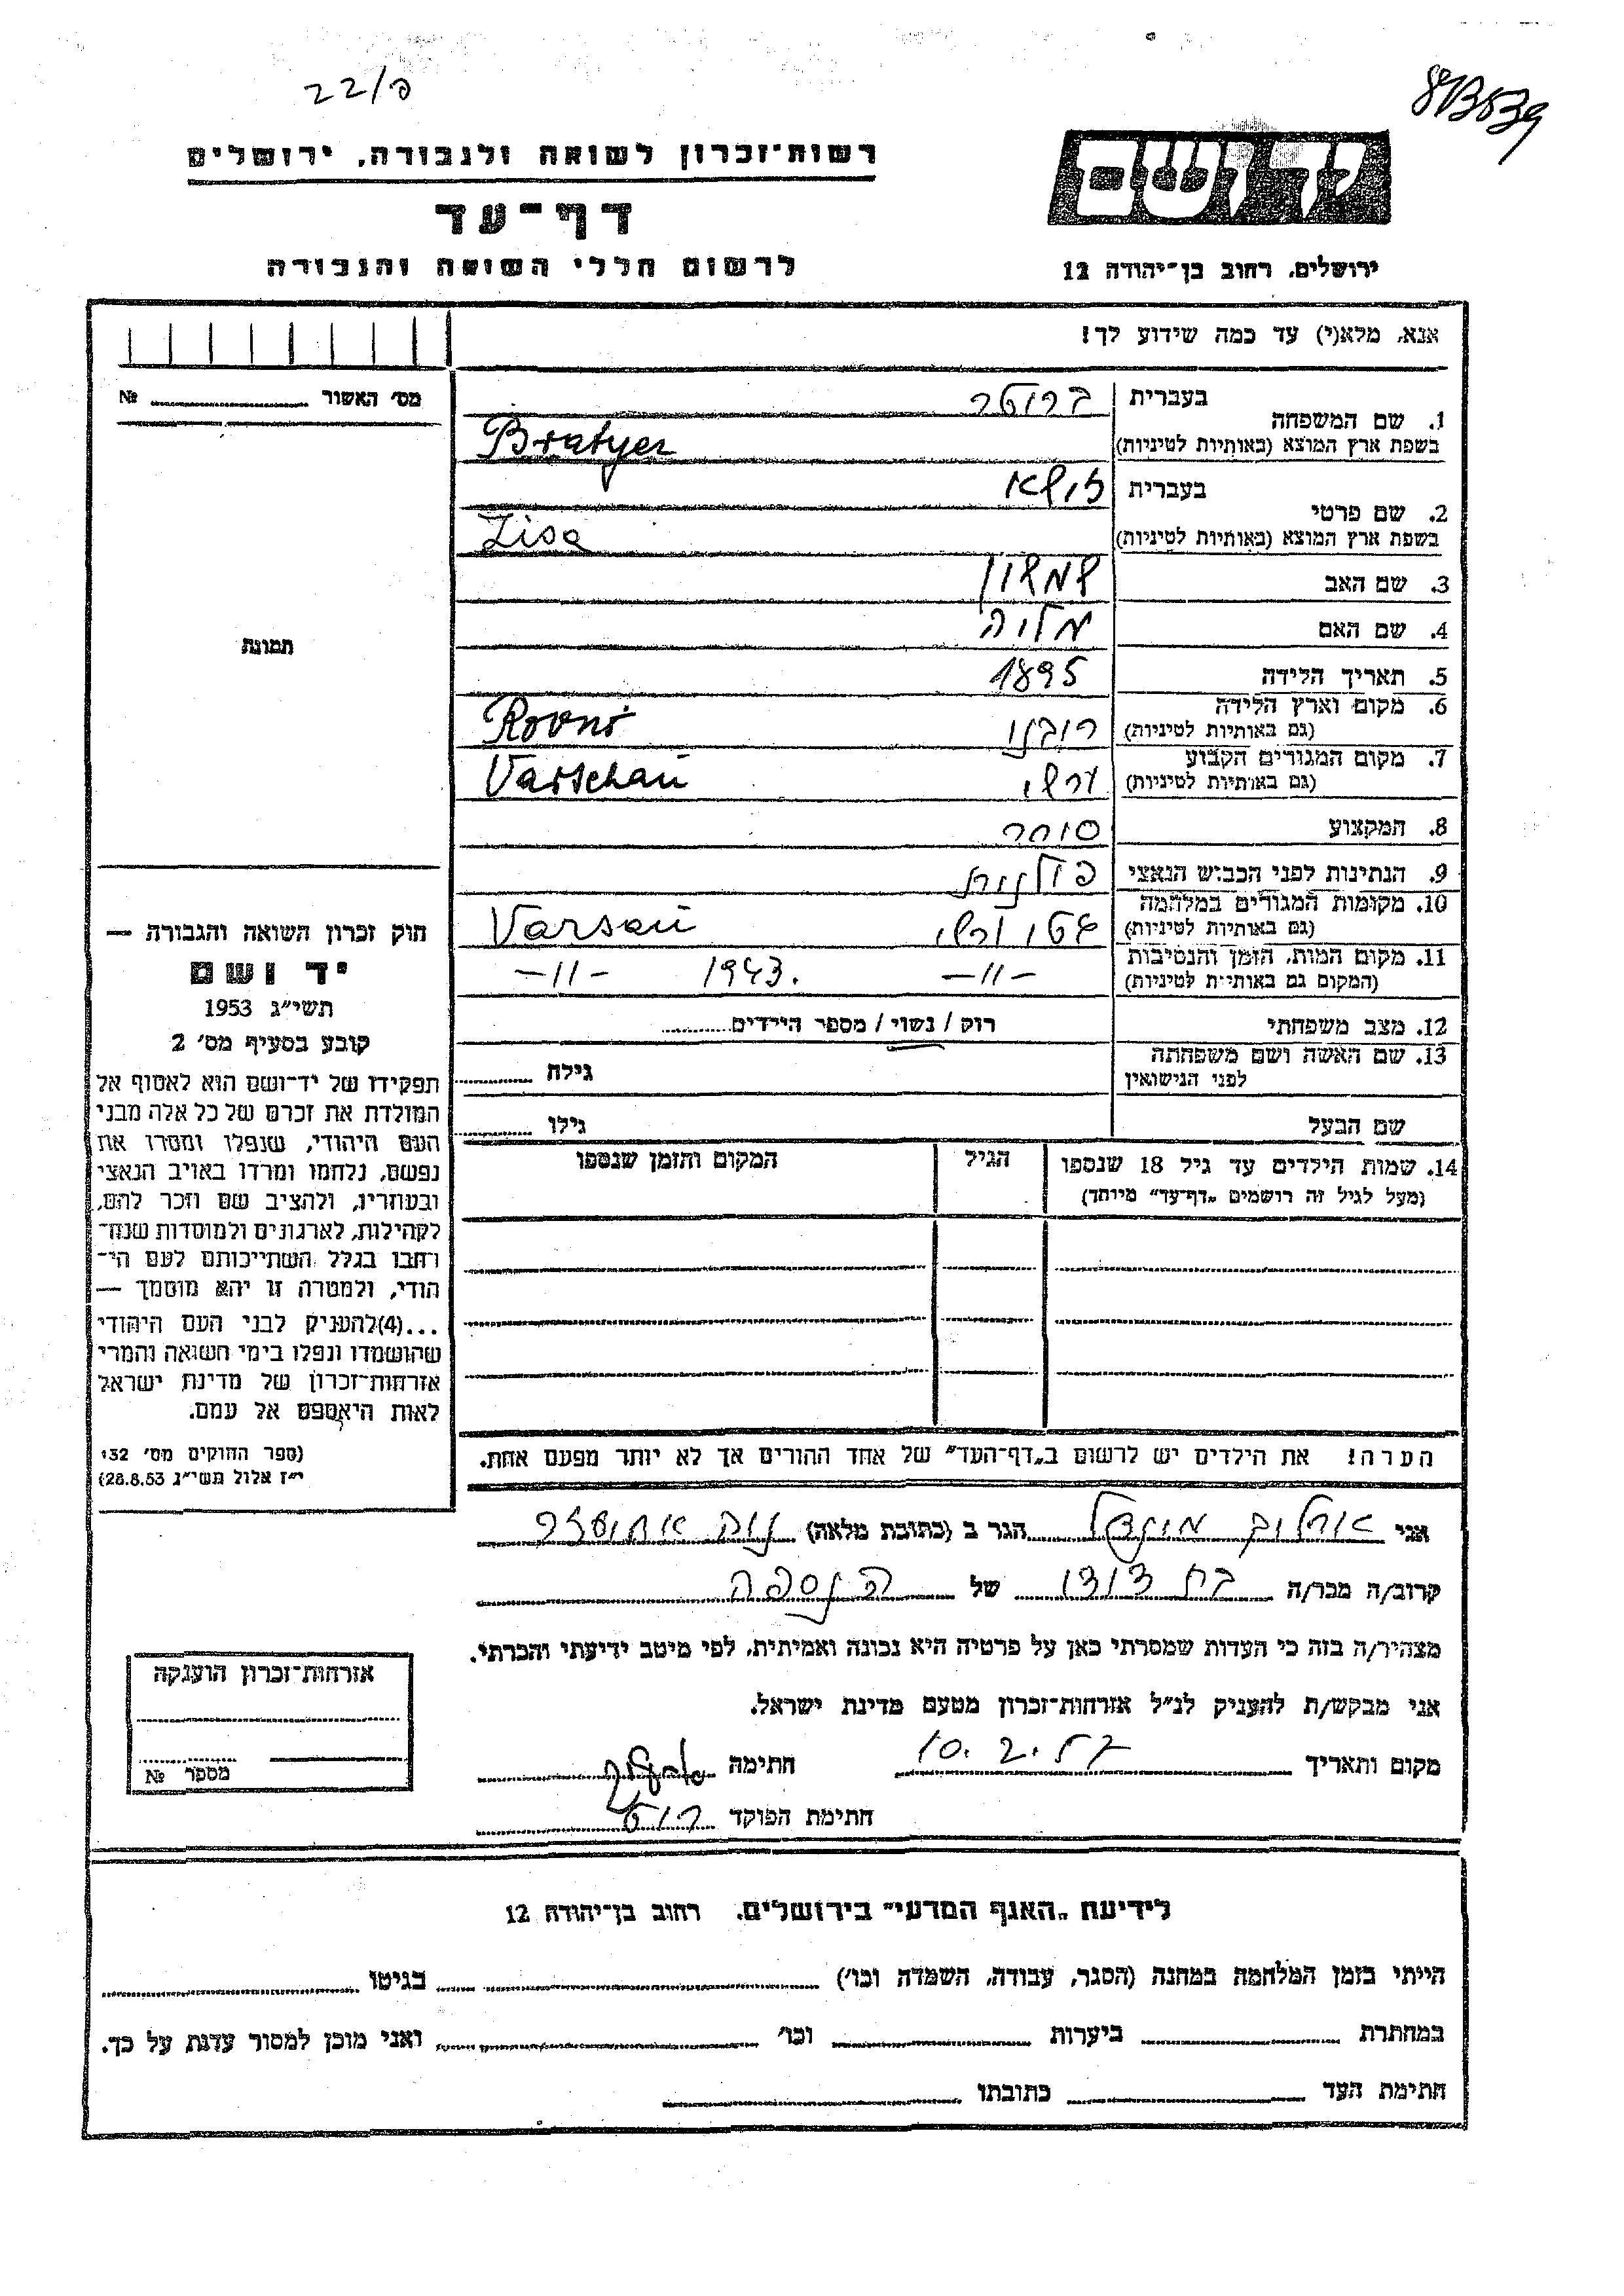 22/פ
813539
רשות-זכרון לשואה ולגבורה, ירושלים
יד ושם
דף-עד
לרשום חללי השואה והגבורה
ירושלים, רחוב בן-יהודה 12
אנא, מלא(י) עד כמה שידוע לך!
מס' האשור № 
1. שם המשפחה
בעברית ברוטר
בשפת ארץ המוצא (באותיות לטיניות) Bratyer
2. שם פרטי
בעברית
בשפת ארץ המוצא (באותיות לטיניות) Zisa
3. שם האב שמשון
4. שם האם מלוה
5. תאריך הלידה 1895
6. מקום וארץ הלידה
(גם באותיות לטיניות) רובנו Rovno
7. מקום המגורים הקבוע
(גם באותיות לטיניות) ורשי Varschau
8. המקצוע סוחר
9. הנתינות לפני הכבוש הנאצי פולנית
10. מקומות המגורים במלחמה
(גם באותיות לטיניות) גטו ורשי Varsau
11. מקום המות, הזמן והנסיבות
(המקום גם באותיות לטיניות) -"- 1943. -"-
12. מצב משפחתי רוק / נשוי / מספר הילדים
13. שם האשה ושם משפחתה
לפני הנישואין גילה
שם הבעל גילו
14. שמות הילדים עד גיל 18 שנספו הגיל המקום והזמן שנספו
(מעל לגיל זה רושמים "דף-עד" מיוחד)
הערה! את הילדים יש לרשום ב"דף-העד" של אחד ההורים אך לא יותר מפעם אחת.
תמונה
חוק זכרון השואה והגבורה —
יד ושם
תשי"ג 1953
קובע בסעיף מס' 2
תפקידו של יד-ושם הוא לאסוף אל
המולדת את זכרם של כל אלה מבני
העם היהודי, שנפלו ומסרו את
נפשם, נלחמו ומרדו באויב הנאצי
ובעוזריו, ולהציב שם וזכר להם,
לקהילות, לארגונים ולמוסדות שנח-
רבו בגלל השתייכותם לעם הי-
הודי, ולמטרה זו יהא מוסמך —
...(4)להעניק לבני העם היהודי
שהושמדו ונפלו בימי השואה והמרי
אזרחות-זכרון של מדינת ישראל
לאות היאספם אל עמם.
(ספר החוקים מס' 132
י"ז אלול תשי"ג 28.8.53)
אני הגר ב (כתובת מלאה)
קרוב/ה מכר/ה בת דודו של הנספה
מצהיר/ה בזה כי העדות שמסרתי כאן על פרטיה היא נכונה ואמיתית, לפי מיטב ידיעתי והכרתי.
אני מבקש/ת להעניק לנ"ל אזרחות-זכרון מטעם מדינת ישראל.
מקום ותאריך 10.2.57 חתימה
חתימת הפוקד
אזרחות-זכרון הוענקה
מספר №
לידיעת "האגף המדעי" בירושלים, רחוב בן-יהודה 12
הייתי בזמן המלחמה במחנה (הסגר, עבודה, השמדה וכו') בגיטו
במחתרת ביערות וכו' ואני מוכן למסור עדות על כך.
חתימת העד כתובתו